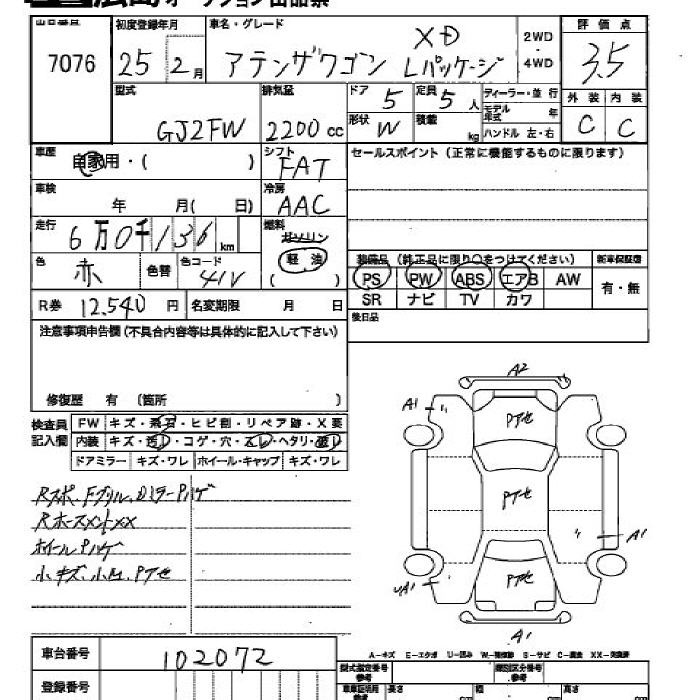 広島オークション出品票
出品番号 初度登録年月 車名・グレード 評価点
7076 25年2月 アテンザワゴン XD Lパッケージ 2WD・4WD 3.5
型式 排気量 ドア 定員 ディーラー・並行 外装 内装
GJ2FW 2200cc 5 5人 モデル年式 年 C C
形状 W 積載 kg ハンドル 左・右
車歴 自家用・( ) シフト FAT セールスポイント(正常に機能するものに限ります)
車検 年 月( 日) 冷房 AAC
走行 6万0千136km 燃料 ガソリン 軽油
色 赤 色替 色コード 41V
装備品(純正品に限り○をつけてください) 新車保証書
PS PW ABS エアB AW 有・無
SR ナビ TV カワ
R券 12,540円 名変期限 月 日 後日品
注意事項申告欄(不具合内容等は具体的に記入して下さい)
修復歴 有 (箇所 )
検査員記入欄 FW キズ・飛石・ヒビ割・リペア跡・X要
内装 キズ・汚レ・コゲ・穴・スレ・ヘタリ・破レ
ドアミラー キズ・ワレ ホイール・キャップ キズ・ワレ
Rスポ、Fグリル、DミラーPハゲ
ホイールPハゲ
小キズ、小凹、Pアセ
A2
A1 Pアセ
Pアセ
A1
A1 Pアセ
A1
A-キズ E-エクボ U-凹み W-補修跡 S-サビ C-腐食 XX-交換済
車台番号 102072
型式指定番号 参考 類別区分番号 参考
登録番号 車庫証明用 参考 長さ cm 幅 cm 高さ cm